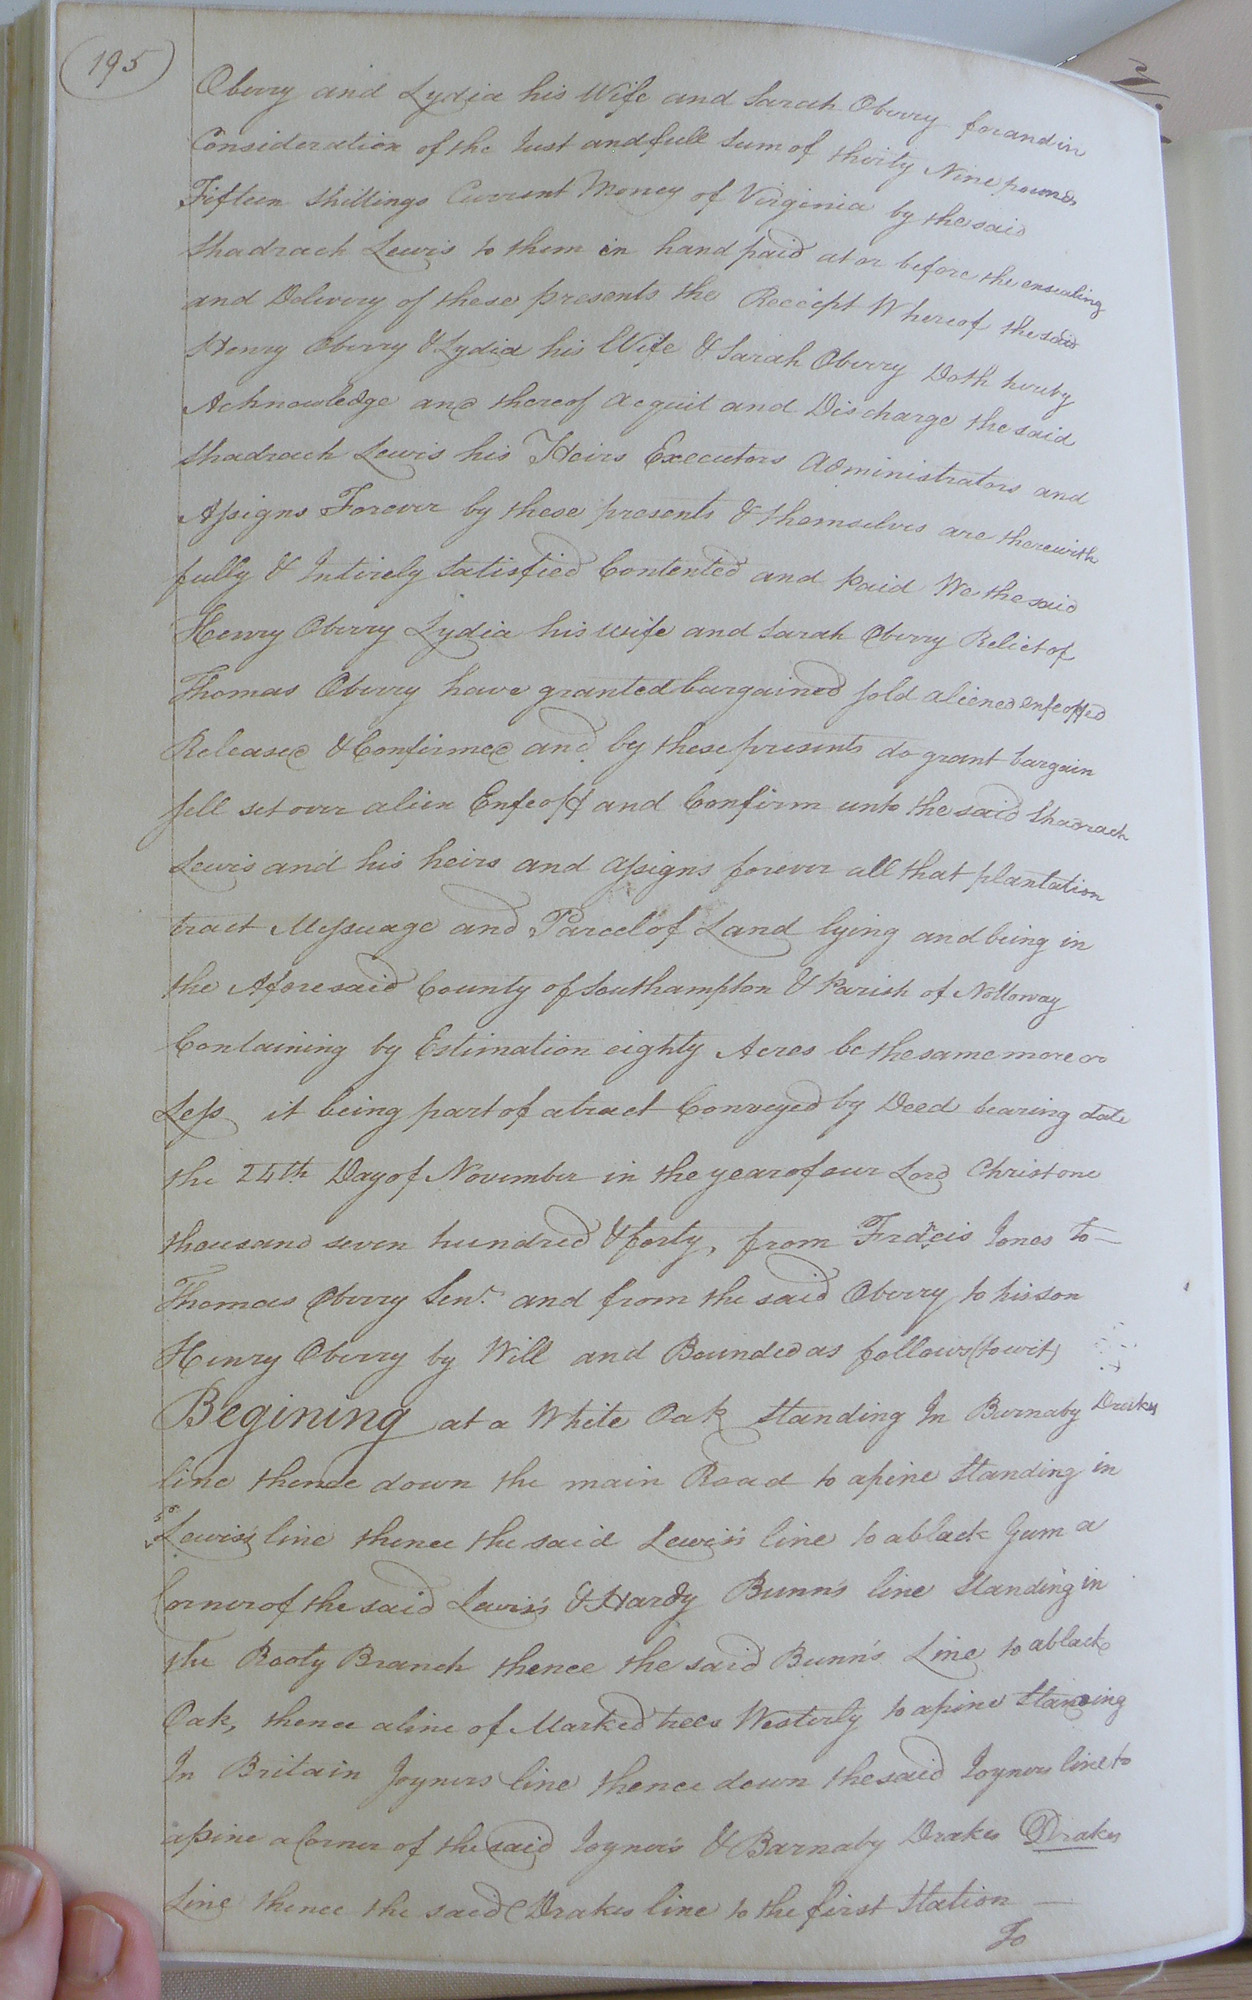 195
Oberry and Lydia his Wife and Sarah Oberry for and in
Consideration of the Just and full Sum of thirty Nine pounds
Fifteen Shillings Current Money of Virginia by the said
Shadrach Lewis to them in hand paid at or before the ensealing
and Delivery of these presents the Receipt Whereof the said
Henry Oberry & Lydia his Wife & Sarah Oberry Doth hereby
Acknowledge and thereof acquit and Discharge the said
Shadrach Lewis his Heirs Executors Administrators and
Assigns Forever by these presents & themselves are therewith
fully & Intirely Satisfied Contented and paid We the said
Henry Oberry Lydia his wife and Sarah Oberry Relict of
Thomas Oberry have granted bargained sold aliened enfeoffed
Released & Confirmed and by these presents do grant bargain
sell set over alien Enfeoff and Confirm unto the said Shadrach
Lewis and his heirs and assigns forever all that plantation
tract Messuage and Parcel of Land lying and being in
the Aforesaid County of Southampton & Parish of Nottoway
Containing by Estimation eighty Acres be the same more or
Less it being part of a tract Conveyed by Deed bearing date
the 24th Day of November in the year of our Lord Christ one
thousand seven hundred & forty, from Francis Jones to
Thomas Oberry Senr. and from the said Oberry to his son
Henry Oberry by Will and Bounded as follows (to wit)
Begining at a White Oak Standing In Burnaby Drakes
line thence down the main Road to a pine Standing in
Lewis's line thence the said Lewis's line to a black Gum a
Corner of the said Lewis's & Hardy Bunn's line Standing in
the Rooty Branch thence the said Bunn's Line to a black
Oak, thence a line of Marked trees Westerly to a pine Standing
In Britain Joyners line thence down the said Joyners line to
a pine a Corner of the said Joyner's & Barnaby Drakes Drakes
Line thence the said Drakes line to the first Station
To